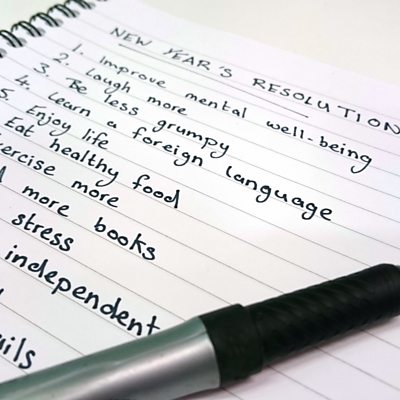 NEW YEAR'S RESOLUTION
1. Improve mental well-being
2. Laugh more
3. Be less grumpy
4. Learn a foreign language
5. Enjoy life
Eat healthy food
more
more books
stress
independent